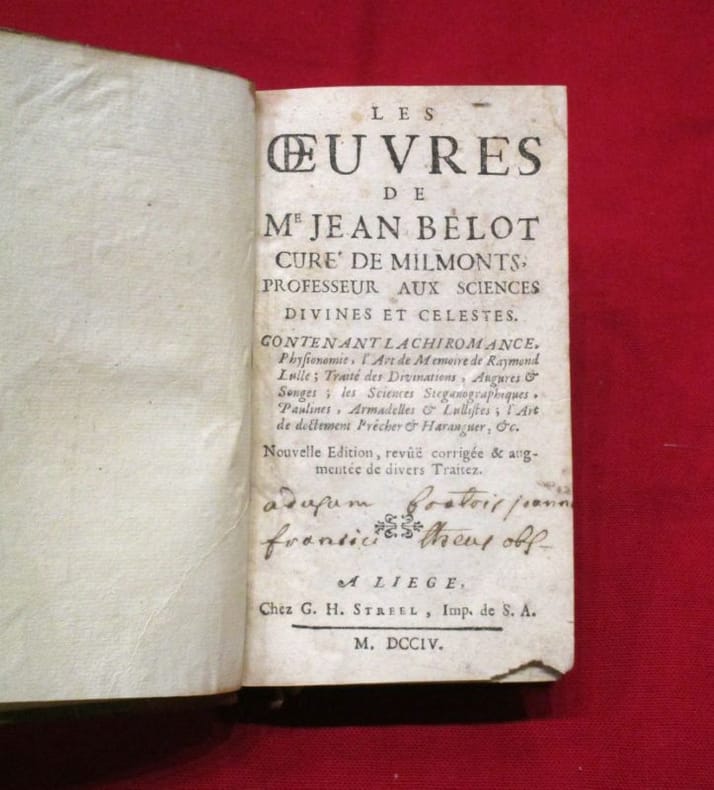 LES
ŒUVRES
DE
Mᴱ JEAN BELOT
CURE' DE MILMONTS,
PROFESSEUR AUX SCIENCES
DIVINES ET CELESTES.
CONTENANT LA CHIROMANCE,
Physionomie, l'Art de Memoire de Raymond
Lulle; Traité des Divinations, Augures &
Songes; les Sciences Steganographiques,
Paulines, Armadelles & Lullistes; l'Art
de doctement Prêcher & Haranguer, &c.
Nouvelle Edition, revûë corrigée & aug-
mentée de divers Traitez.
ad usum
A LIEGE,
Chez G. H. STREEL, Imp. de S. A.
M. DCCIV.